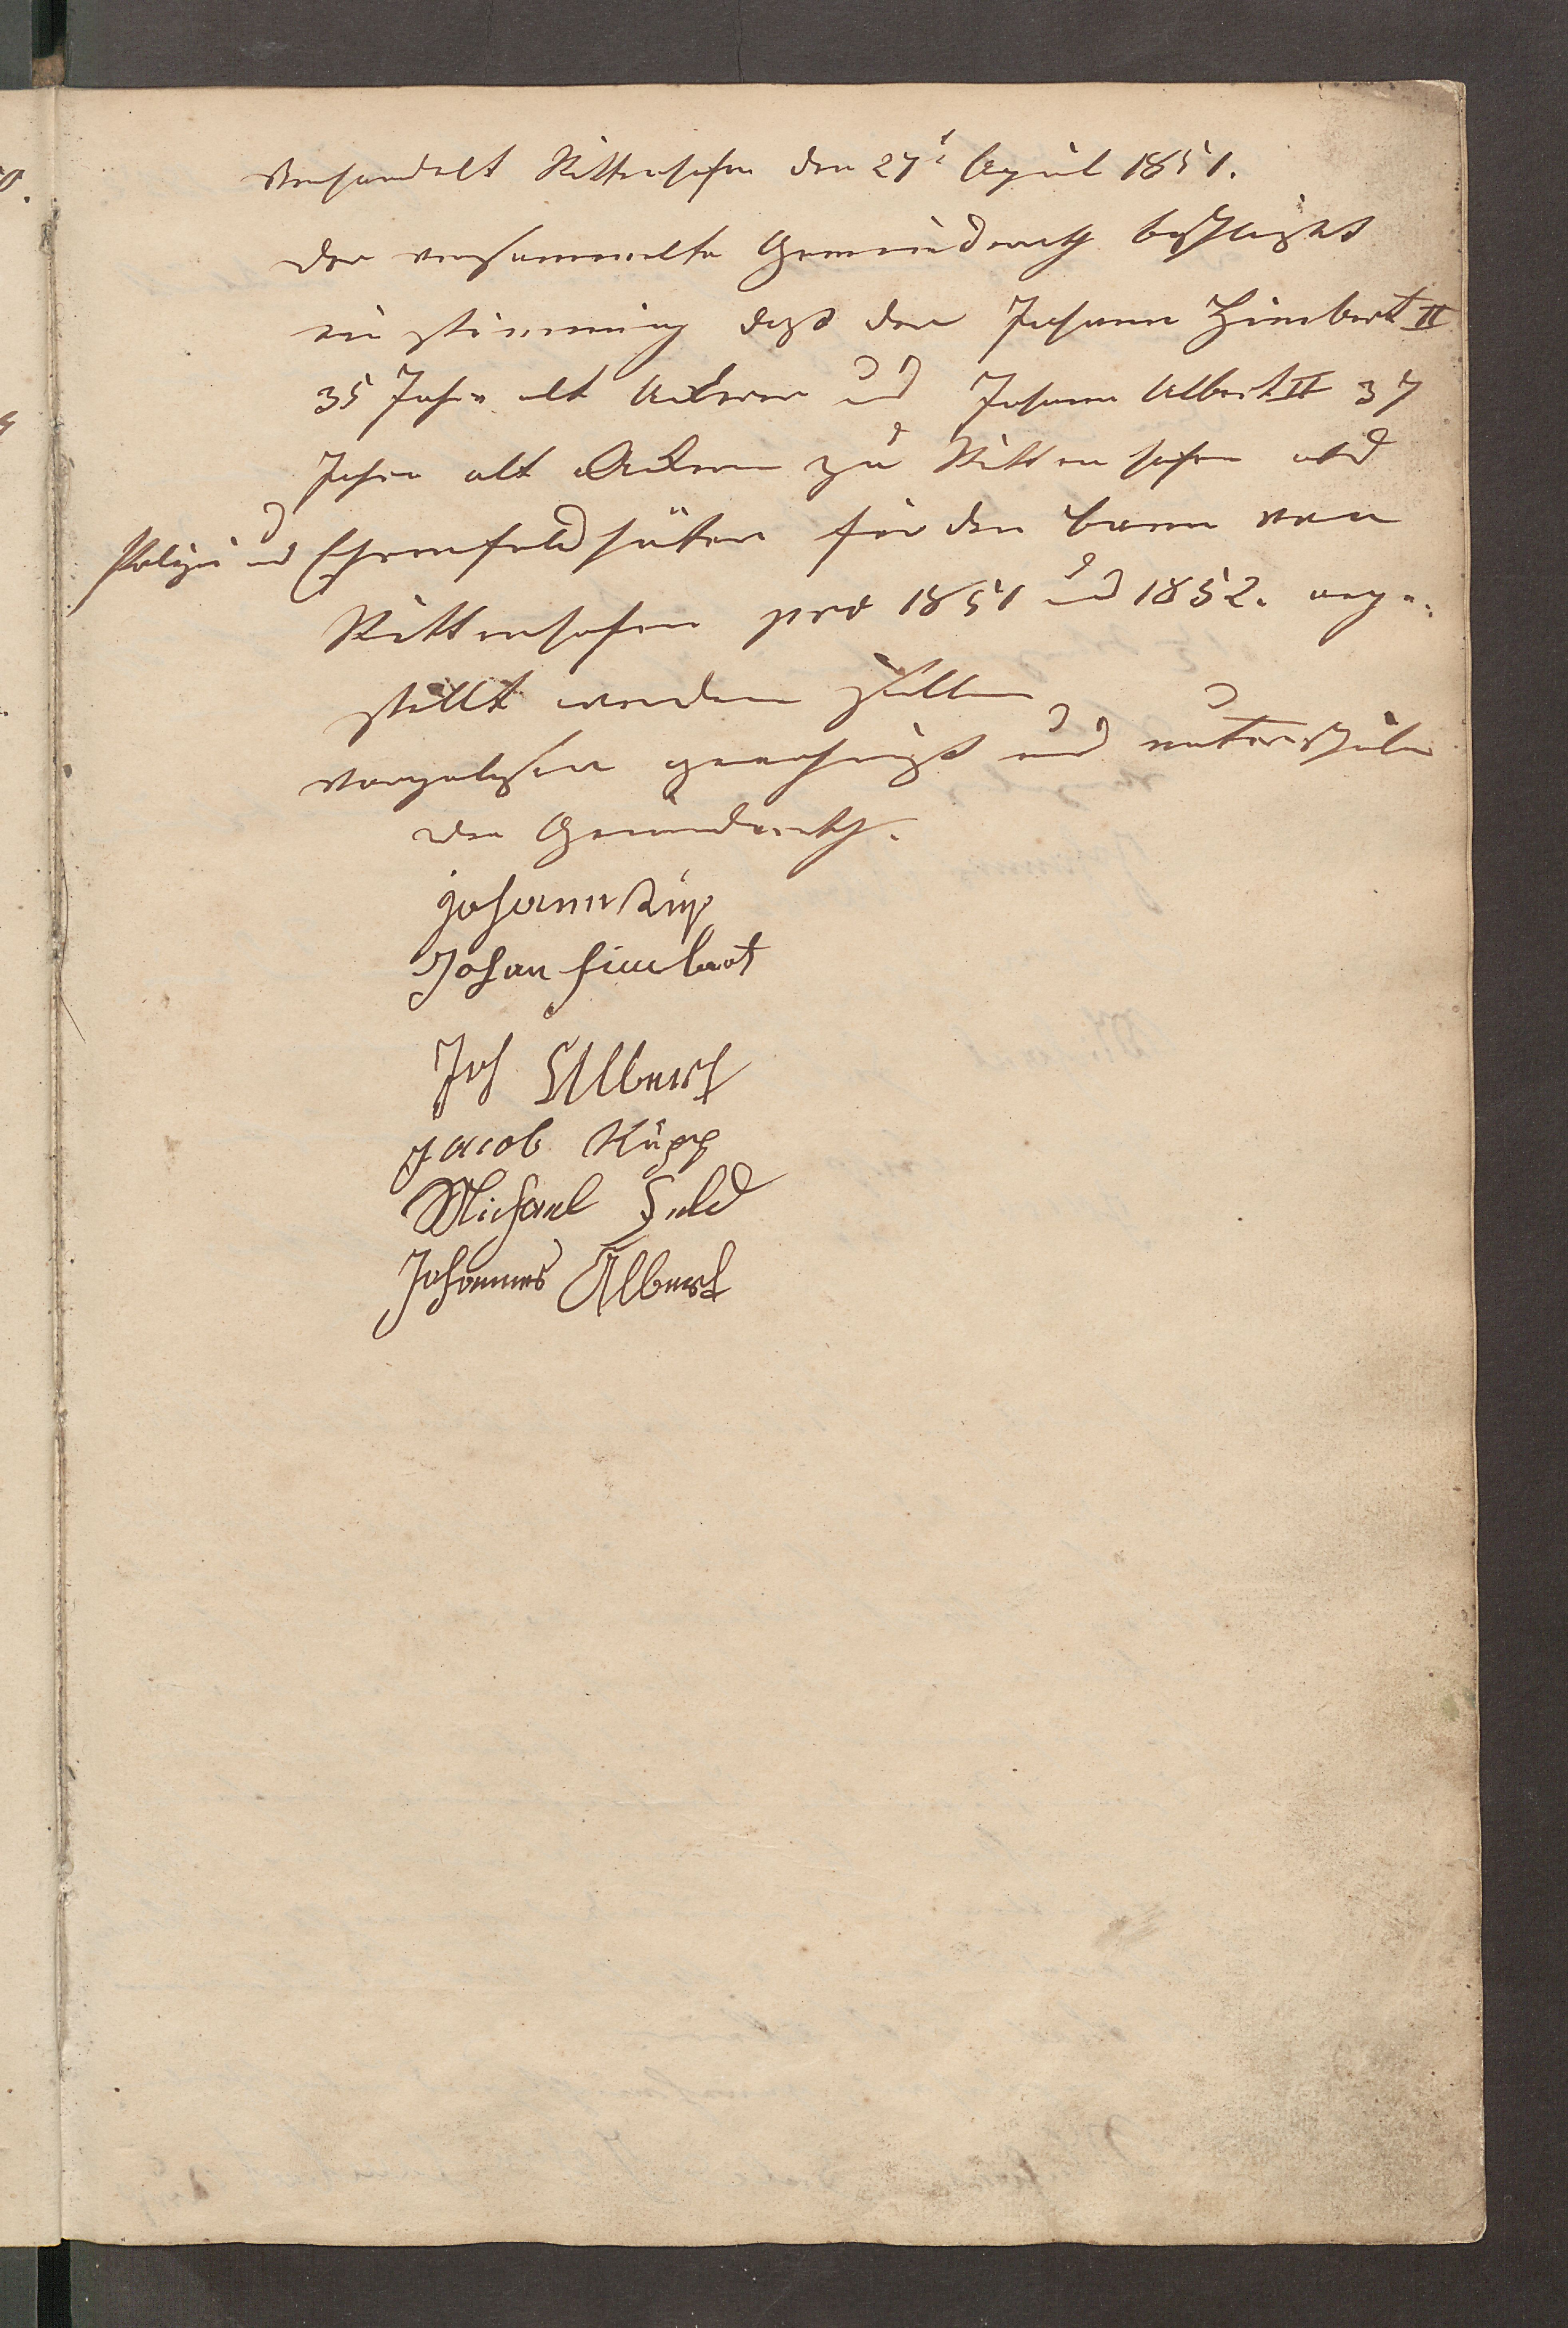 Verhandelt Rittenhofen den 27t April 1851.
Der versammelte Gemeindrath beschließt
ein stimmig daß der Johann Himbert II
35 Jahre alt Ackerer und Johann Albert II 37
Jahre alt Ackerer zu Rittenhofen als
Polizei und Ehrenfeldhüter für den Bann von
Rittenhofen pro 1851 und 1852. ange-
stellt werden sollen
Vorgelesen genehmigt und unterschrieben
Der Gemeindrath.
Johann
Johan Himbert
Joh Albert
Jacob Küpp
Michael
Johannes Albert